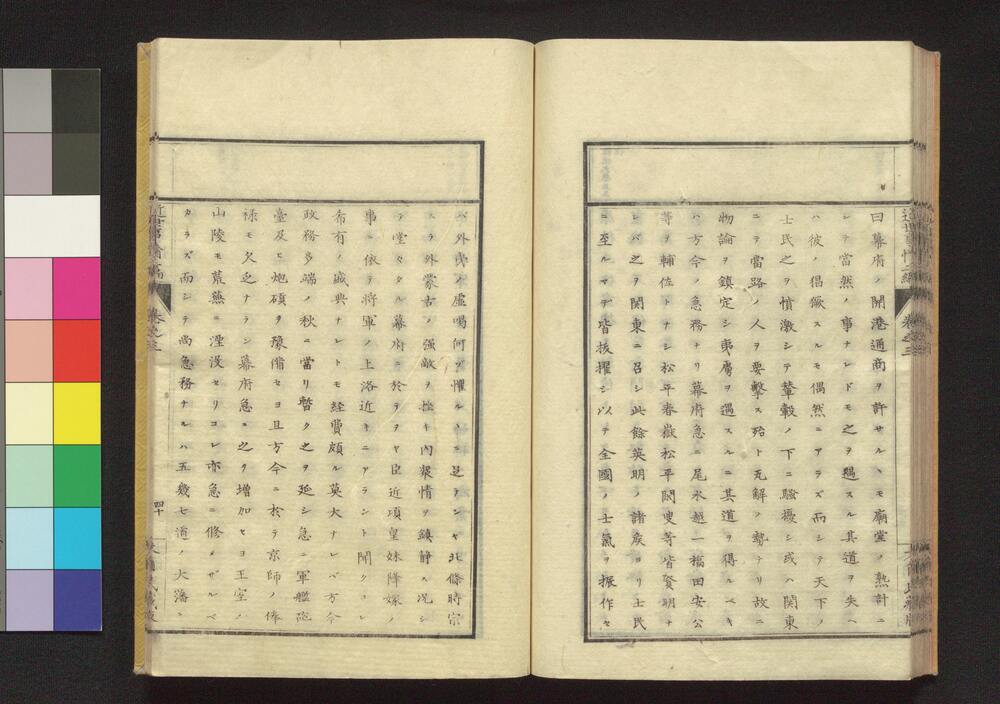 曰幕府ノ開港通商ヲ許セルヽモ廟堂ノ熟計ニ
シテ當然ノ事ナレドモ之ヲ遇スル其道ヲ失ヘ
ハ彼ノ猖獗スルモ偶然ニアラズ而シテ天下ノ
士民之ヲ憤激シテ輦轂ノ下ニ騒擾シ或ハ関東
ニテ當路ノ人ヲ要撃ス殆ト瓦解ノ勢ナリ故ニ
物論ヲ鎮定シ夷虜ヲ遇スルニ其道ヲ得ルベキ
ハ方今ノ急務ナリ幕府急ニ尾水越一福田安公
等ヲ輔佐トナシ松平春嶽松平閑叟等皆賢明ナ
レバ之ヲ関東ニ召シ此餘英明ノ諸侯ヨリ士民
ニ至ルマデ皆抜擢シ以テ全國ノ士氣ヲ振作セ
バ外夷ノ虚喝何ゾ懼ルヽニ足ランヤ北條時宗
スラ外蒙古ノ强敵ヲ挫キ内衆情ヲ鎮静ス况シ
テ堂々タル幕府ニ於テヲヤ臣近頃皇妹降嫁ノ
事ニ依テ將軍ノ上洛近キニアラント聞クコレ
希有ノ盛典ナレトモ経費頗ル莫大ナレバ方今
政務多端ノ秋ニ當リ暫ク之ヲ延シ急ニ軍艦砲
臺及ヒ炮碩ヲ豫備セヨ且方今ニ於テ京師ノ俸
禄モ欠乏ナラン幕府急ニ之ヲ増加セヨ王室ノ
山陵モ荒蕪ニ湮没セリコレ亦急ニ修メザルベ
カラズ而シテ尚急務ナルハ五畿七道ノ大藩ニ
四十